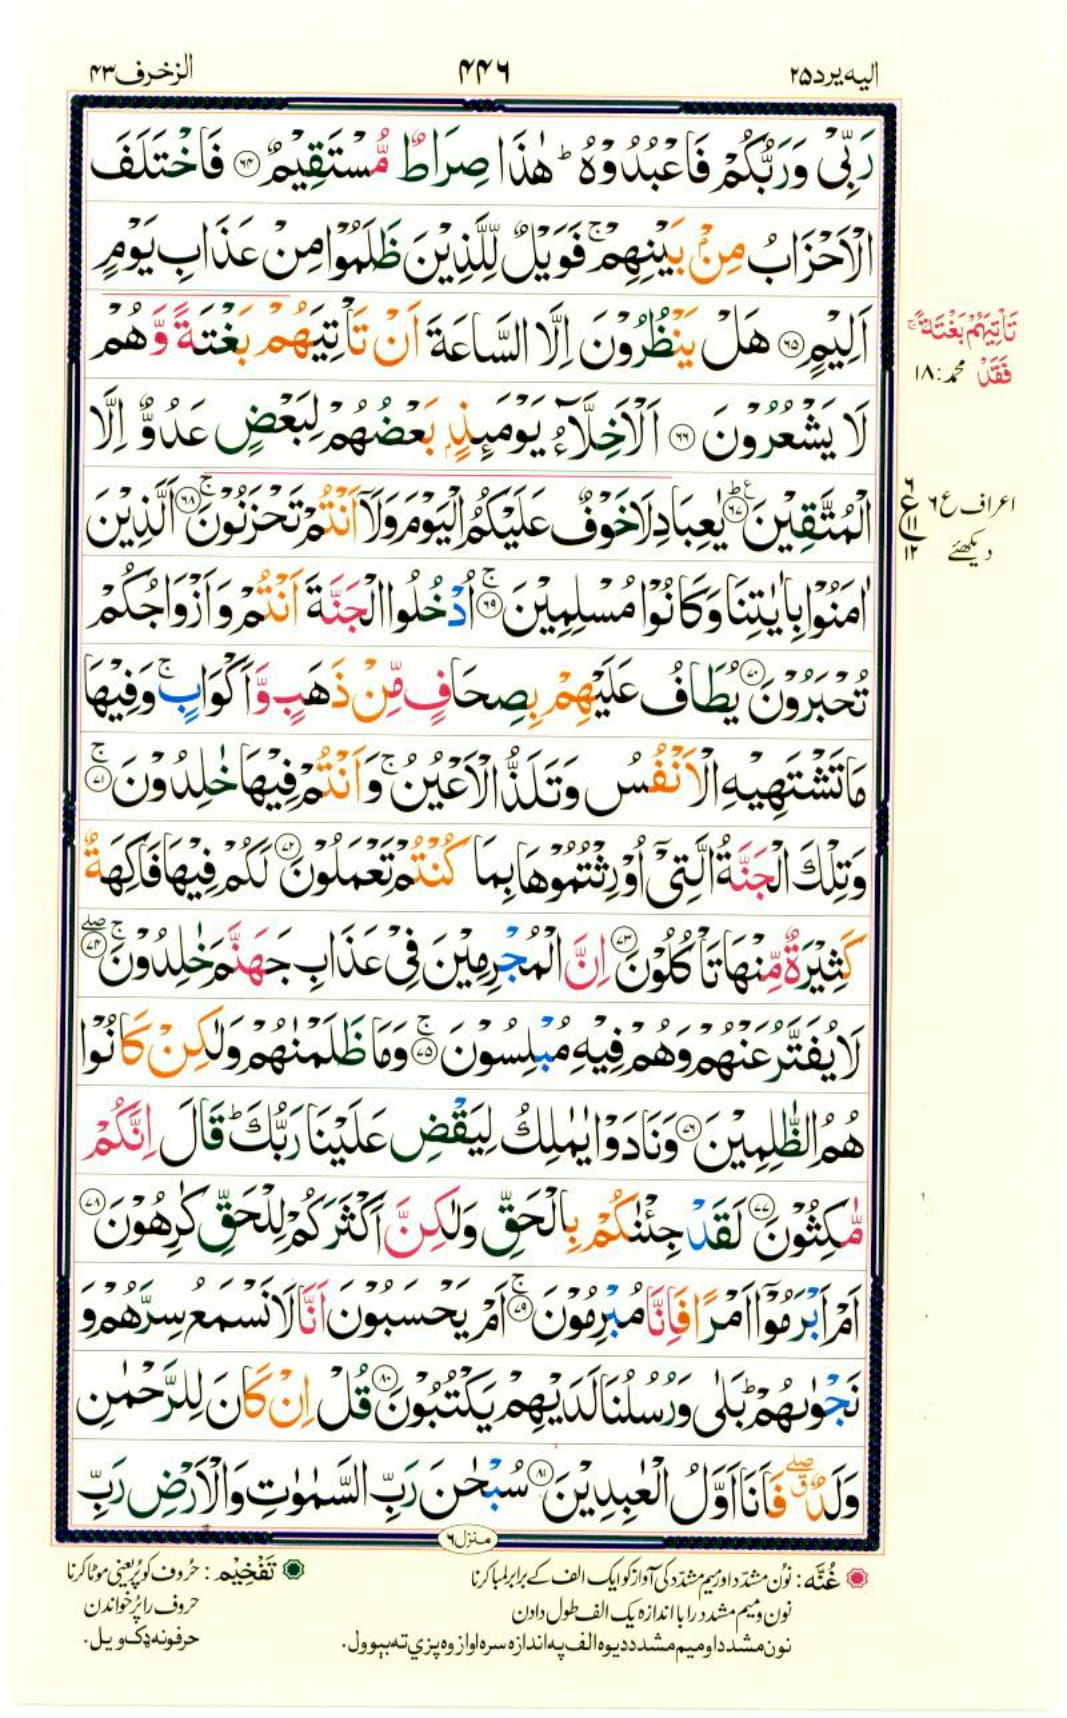 اليه يرد ٢٥
٤٤٦
الزخرف ٤٣
رَبِّىْ وَرَبُّكُمْ فَاعْبُدُوْهُ ؕ هٰذَا صِرَاطٌ مُّسْتَقِيْمٌ ﴿٦٤﴾ فَاخْتَلَفَ
الْاَحْزَابُ مِنْۢ بَيْنِهِمْ ۚ فَوَيْلٌ لِّلَّذِيْنَ ظَلَمُوْا مِنْ عَذَابِ يَوْمٍ
اَلِيْمٍ ﴿٦٥﴾ هَلْ يَنْظُرُوْنَ اِلَّا السَّاعَةَ اَنْ تَاْتِيَهُمْ بَغْتَةً وَّهُمْ
لَا يَشْعُرُوْنَ ﴿٦٦﴾ اَلْاَخِلَّآءُ يَوْمَئِذٍۭ بَعْضُهُمْ لِبَعْضٍ عَدُوٌّ اِلَّا
الْمُتَّقِيْنَ ؕ﴿٦٧﴾ يٰعِبَادِ لَا خَوْفٌ عَلَيْكُمُ الْيَوْمَ وَلَاۤ اَنْتُمْ تَحْزَنُوْنَ ۚ﴿٦٨﴾ اَلَّذِيْنَ
اٰمَنُوْا بِاٰيٰتِنَا وَكَانُوْا مُسْلِمِيْنَ ۚ﴿٦٩﴾ اُدْخُلُوا الْجَنَّةَ اَنْتُمْ وَاَزْوَاجُكُمْ
تُحْبَرُوْنَ ﴿٧٠﴾ يُطَافُ عَلَيْهِمْ بِصِحَافٍ مِّنْ ذَهَبٍ وَّاَكْوَابٍ ۚ وَفِيْهَا
مَا تَشْتَهِيْهِ الْاَنْفُسُ وَتَلَذُّ الْاَعْيُنُ ۚ وَاَنْتُمْ فِيْهَا خٰلِدُوْنَ ۚ﴿٧١﴾
وَتِلْكَ الْجَنَّةُ الَّتِىْۤ اُوْرِثْتُمُوْهَا بِمَا كُنْتُمْ تَعْمَلُوْنَ ﴿٧٢﴾ لَكُمْ فِيْهَا فَاكِهَةٌ
كَثِيْرَةٌ مِّنْهَا تَاْكُلُوْنَ ﴿٧٣﴾ اِنَّ الْمُجْرِمِيْنَ فِىْ عَذَابِ جَهَنَّمَ خٰلِدُوْنَ ۚۖ﴿٧٤﴾
لَا يُفَتَّرُ عَنْهُمْ وَهُمْ فِيْهِ مُبْلِسُوْنَ ۚ﴿٧٥﴾ وَمَا ظَلَمْنٰهُمْ وَلٰكِنْ كَانُوْا
هُمُ الظّٰلِمِيْنَ ﴿٧٦﴾ وَنَادَوْا يٰمٰلِكُ لِيَقْضِ عَلَيْنَا رَبُّكَ ؕ قَالَ اِنَّكُمْ
مّٰكِثُوْنَ ﴿٧٧﴾ لَقَدْ جِئْنٰكُمْ بِالْحَقِّ وَلٰكِنَّ اَكْثَرَكُمْ لِلْحَقِّ كٰرِهُوْنَ ﴿٧٨﴾
اَمْ اَبْرَمُوْۤا اَمْرًا فَاِنَّا مُبْرِمُوْنَ ۚ﴿٧٩﴾ اَمْ يَحْسَبُوْنَ اَنَّا لَا نَسْمَعُ سِرَّهُمْ وَ
نَجْوٰىهُمْ ؕ بَلٰى وَرُسُلُنَا لَدَيْهِمْ يَكْتُبُوْنَ ﴿٨٠﴾ قُلْ اِنْ كَانَ لِلرَّحْمٰنِ
وَلَدٌ ۖۗ فَاَنَا اَوَّلُ الْعٰبِدِيْنَ ﴿٨١﴾ سُبْحٰنَ رَبِّ السَّمٰوٰتِ وَالْاَرْضِ رَبِّ
تَاْتِيَهُمْ بَغْتَةً ۚ
فَقَدْ محمد: ١٨
٦
ع
١١
١٢
اعراف ع ٦
دیکھئے
منزل ٦
غُنَّه : نوُن مشدّد اور میم مشدّد کی آواز کو ایک الف کے برابر لمبا کرنا
نون و میم مشدد را با اندازہ یک الف طول دادن
نون مشدد او میم مشدد دیوہ الف پہ اندازہ سرہ اواز وہ پزي تہ بېوول.
تَفْخِيْم : حُروف کو پُر یعنی موٹا کرنا
حروف را پُر خواندن
حرفونہ ډک ویل.